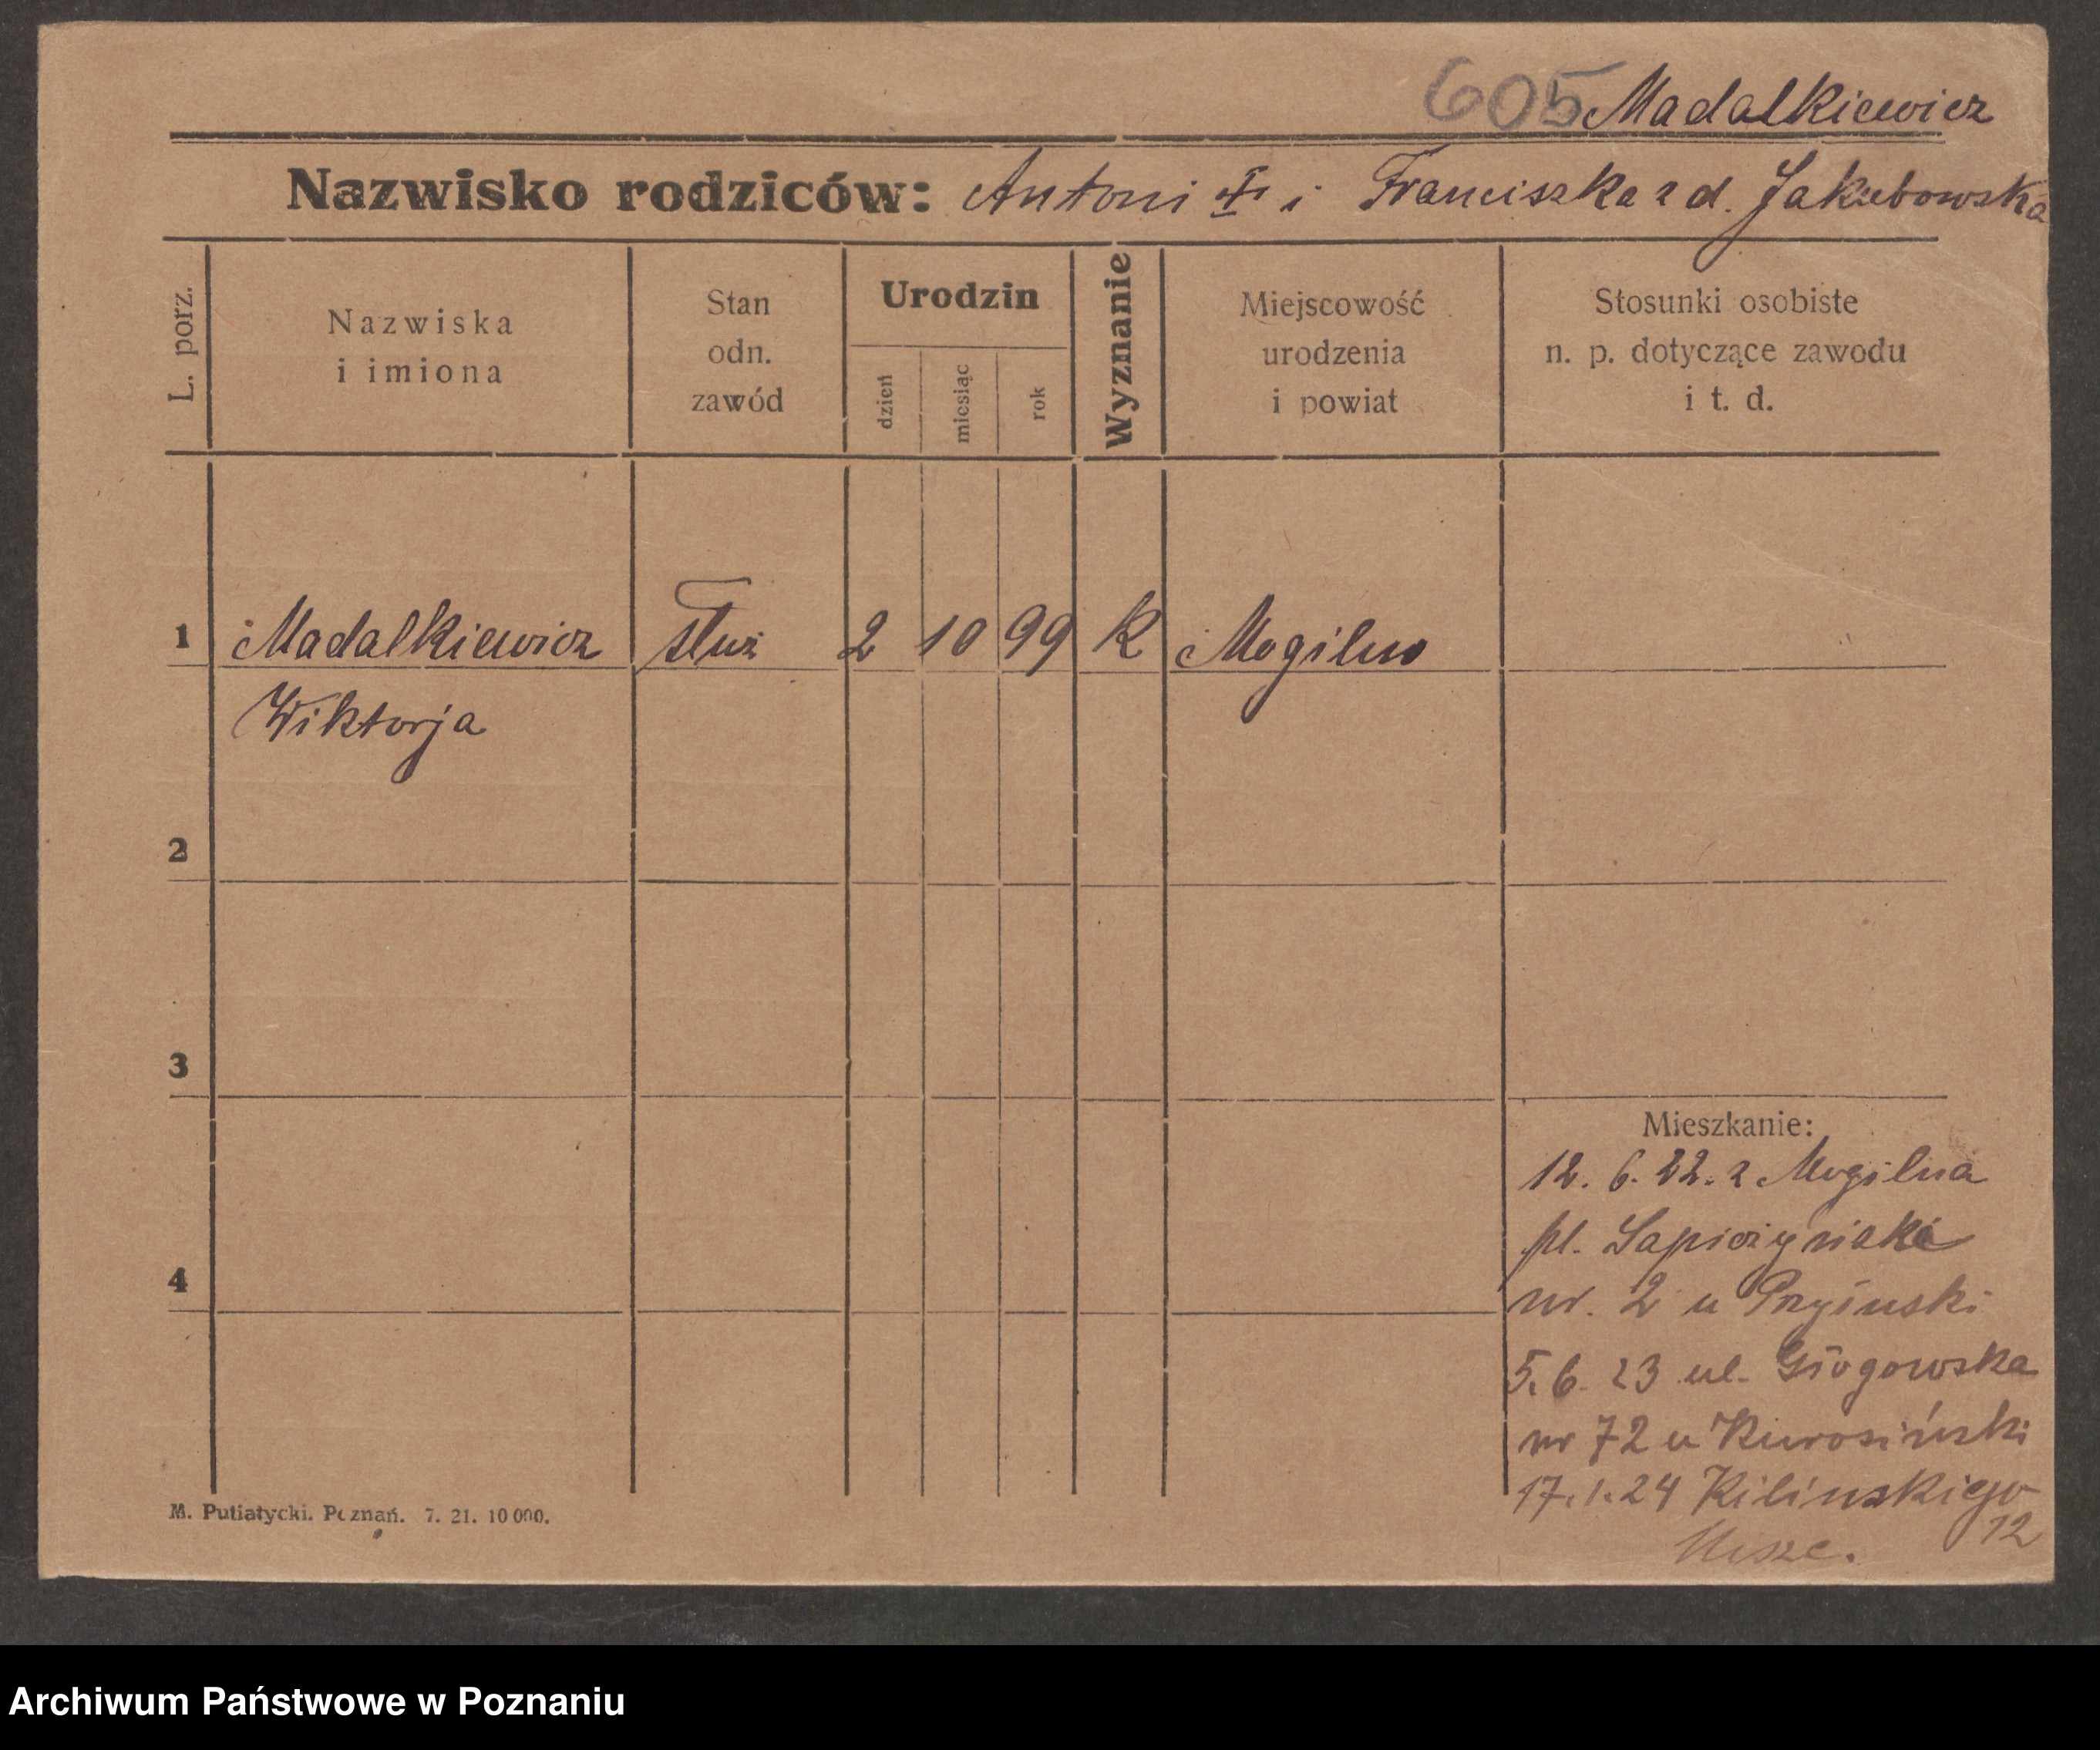 605 Madalkiewicz
Nazwisko rodziców: Antoni † i Franciszka z d. Jakubowska
L. porz.
Nazwiska
i imiona
Stan
odn.
zawód
Urodzin
dzień
miesiąc
rok
Wyznanie
Miejscowość
urodzenia
i powiat
Stosunki osobiste
n. p. dotyczące zawodu
i t. d.
1 Madalkiewicz służ 2 10 99 K Mogilno
Wiktorja
2
3
4
Mieszkanie:
12. 6. 22. z Mogilna
pl. Sapieżyński
nr. 2 u
5. 6. 23 ul. Głogowska
nr 72 u Kurosiński
17. 1. 24 Kilinskiego
12
M. Putiatycki. Poznań. 7. 21. 10 000.
Archiwum Państwowe w Poznaniu